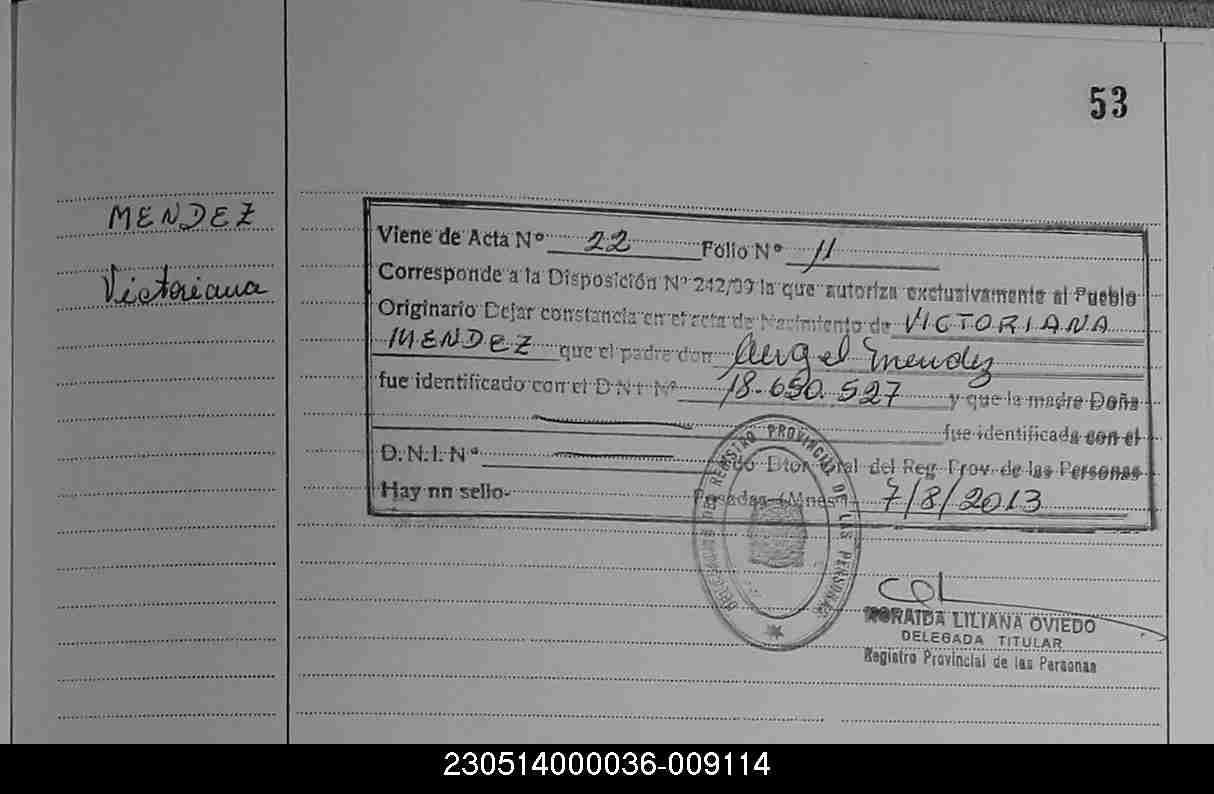 53
MENDEZ
Victoriana
Viene de Acta Nº 22 Folio Nº 11
Corresponde a la Disposición Nº 242/09 la que autoriza exclusivamente al Pueblo
Originario Dejar constancia en el acta de Nacimiento de VICTORIANA
MENDEZ que el padre don Angel Mendez
fue identificado con el D.N.I. Nº 18.650.527 y que la madre Doña
fue identificada con el
D.N.I. Nº do Dtor. Gral del Reg. Prov. de las Personas
Hay nn sello- Posadas (Mnes) 7/8/2013
REGISTRO PROVINCIAL DE LAS PERSONAS
LILIANA OVIEDO
DELEGADA TITULAR
Registro Provincial de las Personas
230514000036-009114